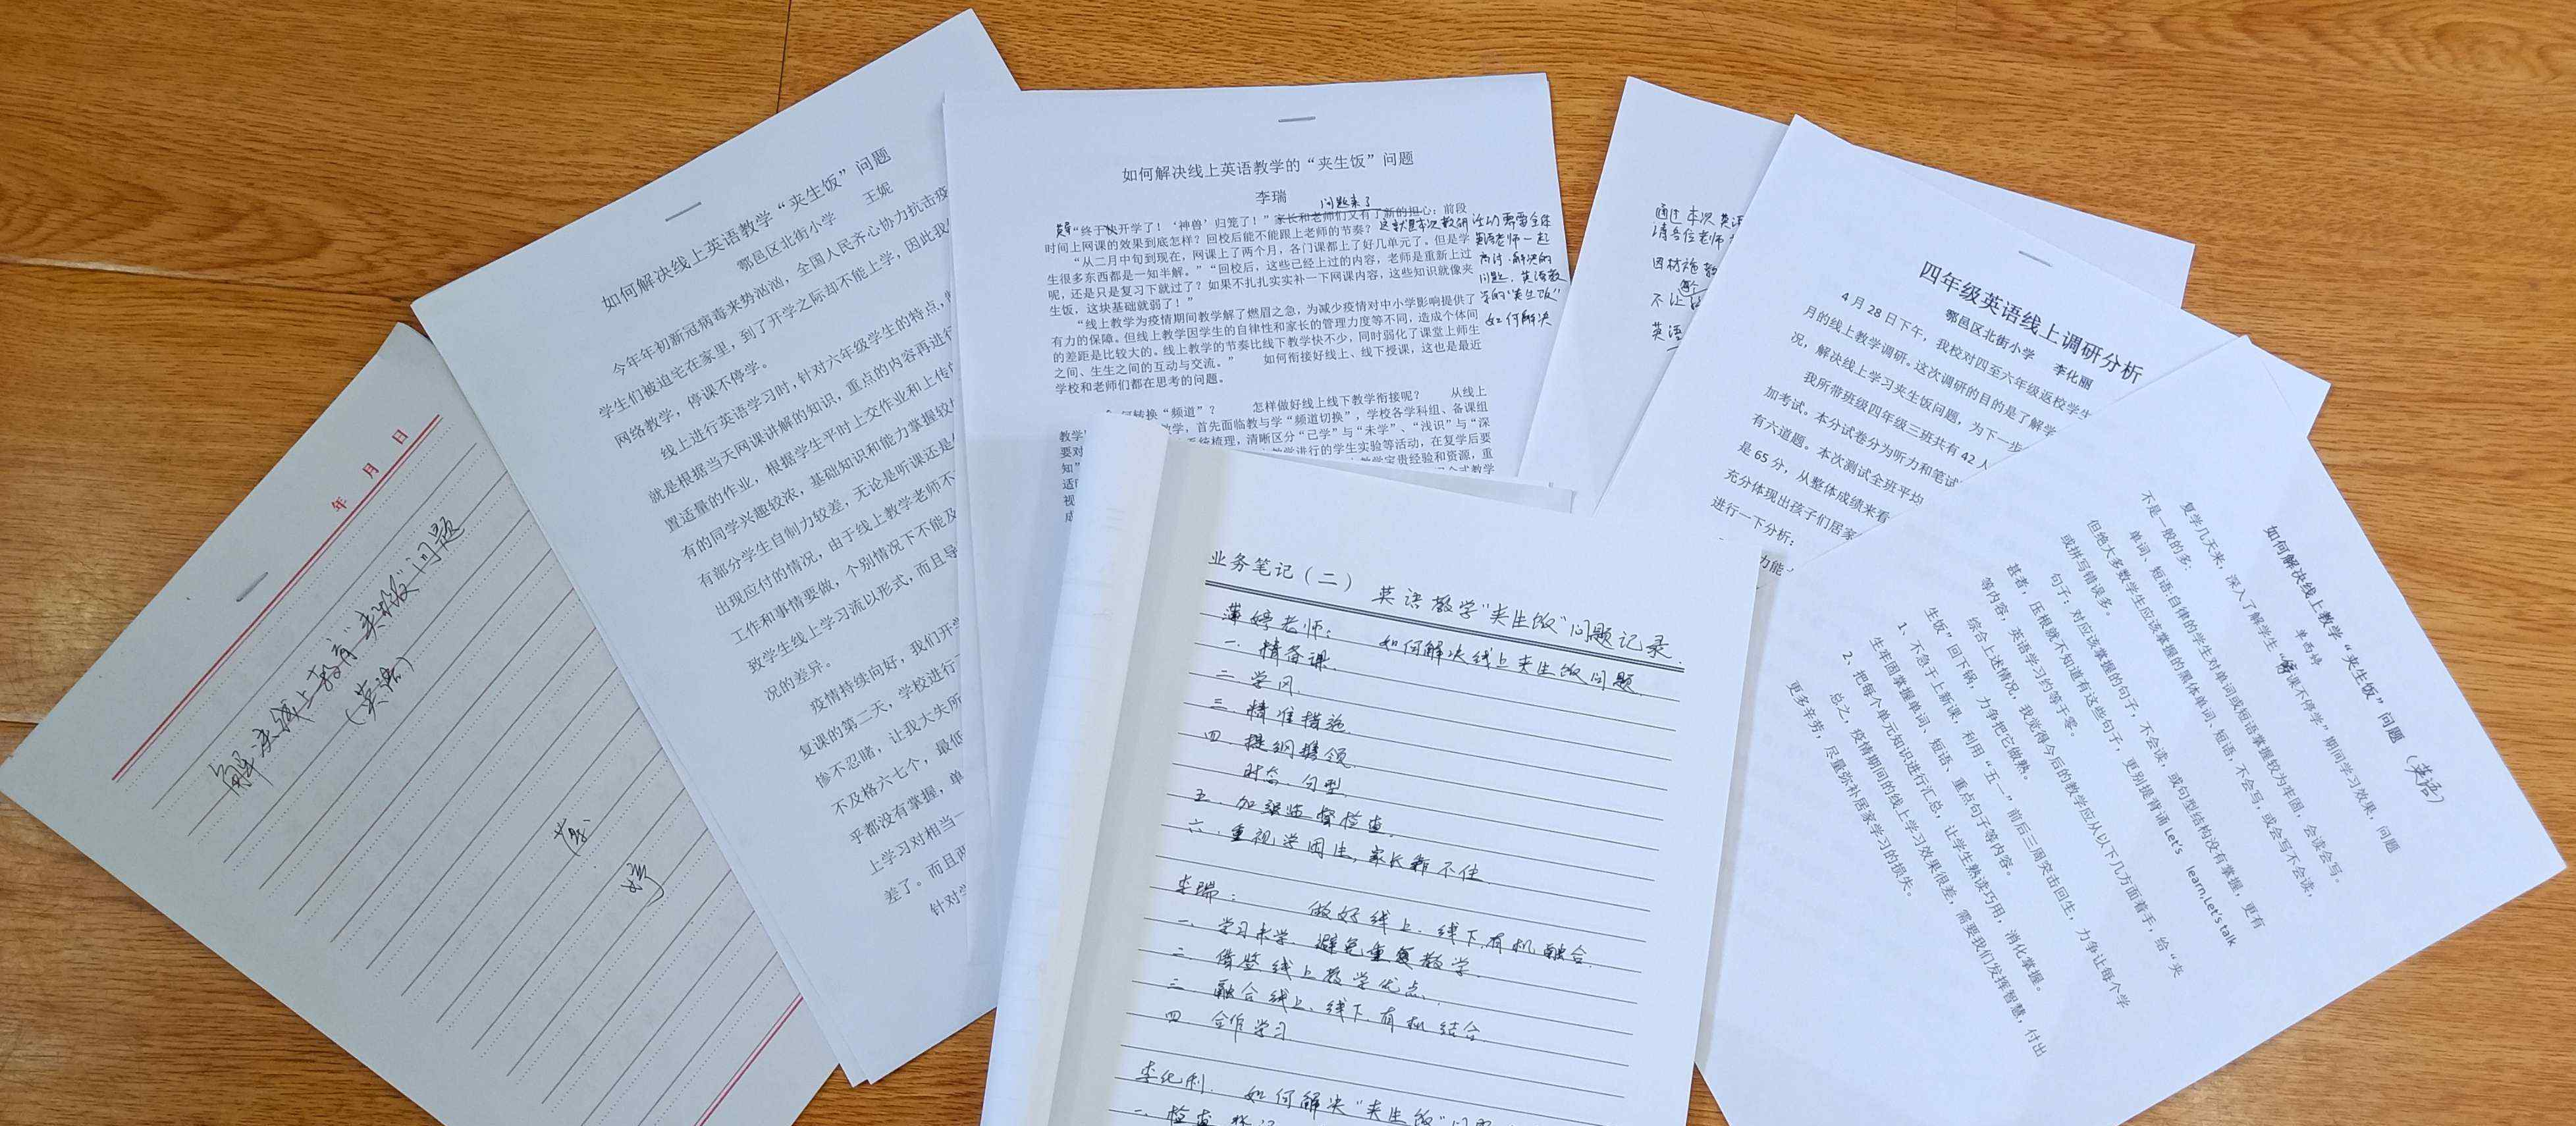 年 月 日
解决线上教育“夹生饭”问题
（英语）
婷
如何解决线上英语教学“夹生饭”问题
鄠邑区北街小学 王妮
今年年初新冠病毒来势汹汹，全国人民齐心协力抗击疫
学生们被迫宅在家里，到了开学之际却不能上学，因此我
网络教学，停课不停学。
线上进行英语学习时，针对六年级学生的特点，
就是根据当天网课讲解的知识，重点的内容再进行
置适量的作业，根据学生平时上交作业和上传
有的同学兴趣较浓，基础知识和能力掌握较
有部分学生自制力较差，无论是听课还是
出现应付的情况，由于线上教学老师不
工作和事情要做，个别情况下不能及
致学生线上学习流以形式，而且导
况的差异。
疫情持续向好，我们开学
复课的第二天，学校进行
惨不忍睹，让我大失所
不及格六七个，最低
乎都没有掌握，单
上学习对相当一
差了。而且两
针对学
如何解决线上英语教学的“夹生饭”问题
李瑞
问题来了
“终于快开学了！‘神兽’归笼了！”家长和老师们又有了新的担心：前段
时间上网课的效果到底怎样？回校后能不能跟上老师的节奏？
“从二月中旬到现在，网课上了两个月，各门课都上了好几单元了。但是学
生很多东西都是一知半解。”“回校后，这些已经上过的内容，老师是重新上过
呢，还是只是复习下就过了？如果不扎扎实实补一下网课内容，这些知识就像夹
生饭，这块基础就弱了！”
“线上教学为疫情期间教学解了燃眉之急，为减少疫情对中小学影响提供了
有力的保障。但线上教学因学生的自律性和家长的管理力度等不同，造成个体间
的差距是比较大的。线上教学的节奏比线下教学快不少，同时弱化了课堂上师生
之间、生生之间的互动与交流。” 如何衔接好线上、线下授课，这也是最近
学校和老师们都在思考的问题。
这就是本次教研活动需要全体
英语老师一起
商讨、解决的
问题，英语教
学的“夹生饭”
如何解决
何转换“频道”？ 怎样做好线上线下教学衔接呢？ 从线上
教学，首先面临教与学“频道切换”，学校各学科组、备课组
系统梳理，清晰区分“已学”与“未学”、“浅识”与“深
知”
教学进行的学生实验等活动，在复学后要
教学宝贵经验和资源，重
通过本次英语
请各位老师
因材施教
不让
英语
四年级英语线上调研分析
鄠邑区北街小学 李化丽
4月28日下午，我校对四至六年级返校学生
月的线上教学调研。这次调研的目的是了解学
况，解决线上学习夹生饭问题，为下一步
我所带班级四年级三班共有42人
加考试。本分试卷分为听力和笔试
有六道题。本次测试全班平均
是65分，从整体成绩来看
充分体现出孩子们居家
进行一下分析：
功能
如何解决线上教学“夹生饭”问题（英语）
单西婷
复学几天来，深入了解学生“停课不停学”期间学习效果，问题
不是一般的多：
单词、短语自律的学生对单词或短语掌握较为牢固，会读会写。
但绝大多数学生应该掌握的黑体单词、短语，不会写，或会写不会读，
或拼写错误多。
句子：对应该掌握的句子，不会读，或句型结构没有掌握，更有
甚者，压根就不知道有这些句子，更别提背诵 Let's learn,Let's talk
等内容，英语学习约等于零。
综合上述情况，我觉得今后的教学应从以下几方面着手，给“夹
生饭”回下锅，力争把它做熟。
1、不急于上新课，利用“五一”前后三周突击回生，力争让每个学
生牢固掌握单词、短语、重点句子等内容。
2、把每个单元知识进行汇总，让学生熟读巧用，消化掌握。
总之，疫情期间的线上学习效果很差，需要我们发挥智慧，付出
更多辛劳，尽量弥补居家学习的损失。
业务笔记（二） 英语教学“夹生饭”问题记录.
薄婷老师： 如何解决线上夹生饭问题.
一. 精备课.
二. 学风.
三. 精准措施.
四. 提纲挈领.
时态. 句型
五. 加强监督检查.
六. 重视学困生，家长靠不住.
李瑞： 做好线上. 线下. 有机融合.
一. 学习未学. 避免重复教学.
二. 借鉴线上教学优点.
三. 融合线上、线下. 有机结合.
四. 合作学习
李化利. 如何解决“夹生饭”问
一. 检查